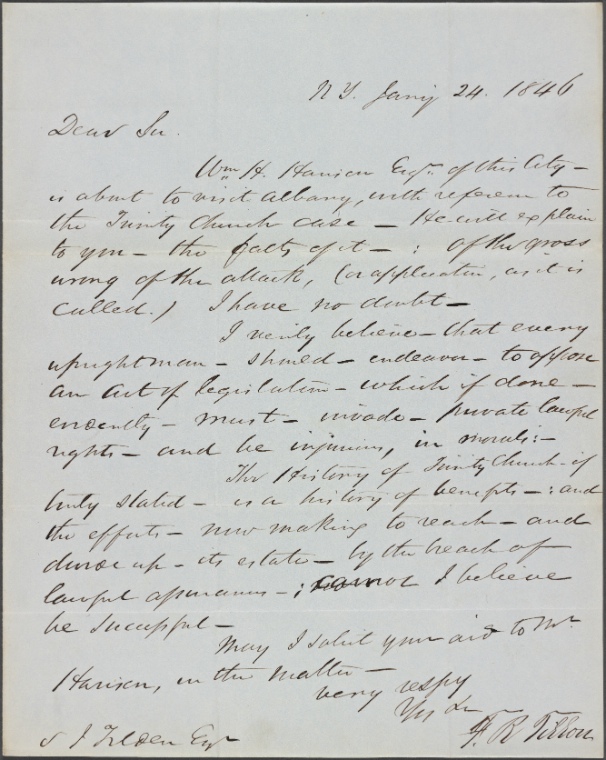 N Y. Jany 24. 1846
Dear Sir.
Wm H. Harison Esqr. of this City -
is about to visit Albany, with reference to
the Trinity Church case - He will explain
to you - the facts of it - : Of the gross
wrong of the attack, (or application, as it is
called.) I have no doubt -
I verily believe - that every
upright man - should - endeavor - to oppose
an act of legislation - which if done -
evidently - must - invade - private lawful
rights - and be injurious, in morals: -
The History of Trinity Church - if
truly stated - is a history of benefits - : and
the efforts - now making to reach - and
divide up - its estate - by the breach of
lawful assurances - ; cannot I believe
be successful -
May I solicit your aid to Mr
Harison, in the matter -
very respy
Yrs &c
S J Tilden Esqr
F. R. Tillou